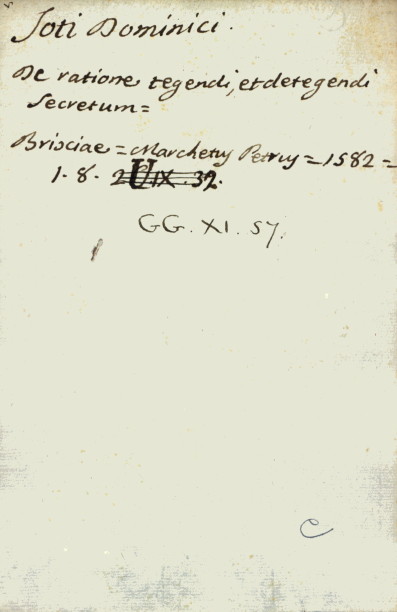 Soti Dominici.
De ratione tegendi, et detegendi
Secretum =
Brisciae = Marchetus Petrus = 1582 =
1. 8. 2 U IX. 32.
GG. XI. 57.
e